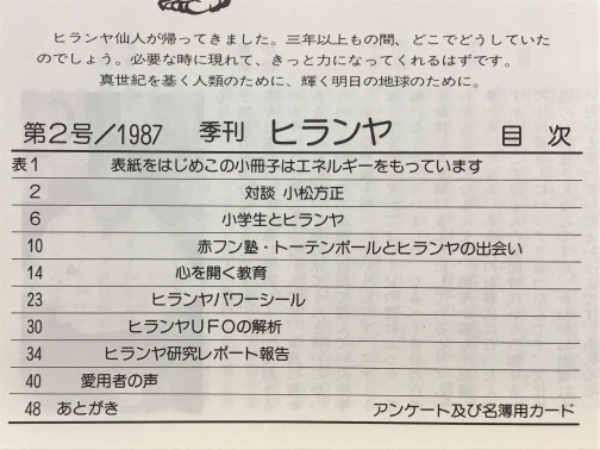 ヒランヤ仙人が帰ってきました。三年以上もの間、どこでどうしていた
のでしょう。必要な時に現れて、きっと力になってくれるはずです。
真世紀を基く人類のために、輝く明日の地球のために。
第2号/1987 季刊 ヒランヤ 目次
表1 表紙をはじめこの小冊子はエネルギーをもっています
2 対談 小松方正
6 小学生とヒランヤ
10 赤フン塾・トーテンポールとヒランヤの出会い
14 心を開く教育
23 ヒランヤパワーシール
30 ヒランヤUFOの解析
34 ヒランヤ研究レポート報告
40 愛用者の声
48 あとがき アンケート及び名簿用カード